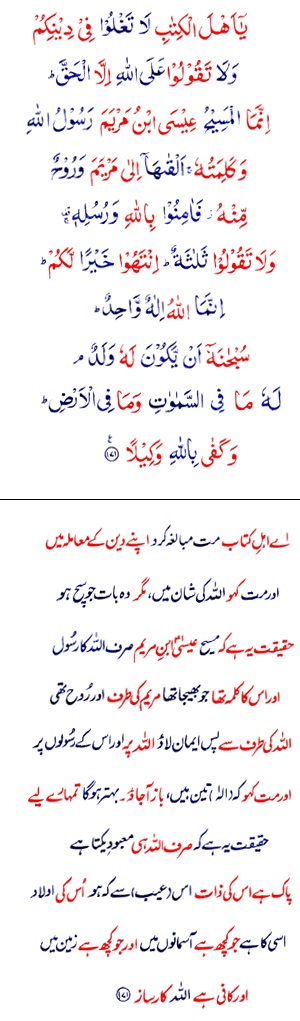 يٰۤاَهْلَ الْكِتٰبِ لَا تَغْلُوْا فِىْ دِيْنِكُمْ
وَلَا تَقُوْلُوْا عَلَى اللّٰهِ اِلَّا الْحَقَّ ؕ
اِنَّمَا الْمَسِيْحُ عِيْسَى ابْنُ مَرْيَمَ رَسُوْلُ اللّٰهِ
وَكَلِمَتُهٗ ۚ اَلْقٰٮهَاۤ اِلٰى مَرْيَمَ وَرُوْحٌ
مِّنْهُ ؗ فَاٰمِنُوْا بِاللّٰهِ وَرُسُلِهٖ ۚ
وَلَا تَقُوْلُوْا ثَلٰثَةٌ ؕ اِنْتَهُوْا خَيْرًا لَّكُمْ ؕ
اِنَّمَا اللّٰهُ اِلٰهٌ وَّاحِدٌ ؕ
سُبْحٰنَهٗۤ اَنْ يَّكُوْنَ لَهٗ وَلَدٌ ۘ
لَهٗ مَا فِى السَّمٰوٰتِ وَمَا فِى الْاَرْضِ ؕ
وَكَفٰى بِاللّٰهِ وَكِيْلًا ۧ ﴿۱۷۱﴾
اے اہلِ کتاب مت مبالغہ کرو اپنے دین کے معاملہ میں
اور مت کہو اللہ کی شان میں، مگر وہ بات جو سچ ہو
حقیقت یہ ہے کہ مسیح عیسیٰؑ ابنِ مریم صرف اللہ کا رسُول
اور اس کا کلمہ تھا جو بھیجا تھا مریم کی طرف اور رُوح تھی
اللہ کی طرف سے پس ایمان لاؤ اللہ پر اور اس کے رسُولوں پر
اور مت کہو کہ (الٰہ) تین ہیں، باز آجاؤ۔ بہتر ہوگا تمہارے لیے
حقیقت یہ ہے کہ صرف اللہ ہی معبودِ یکتا ہے
پاک ہے اس کی ذات اس (عیب) سے کہ ہو اُس کی اولاد
اسی کا ہے جو کچھ ہے آسمانوں میں اور جو کچھ ہے زمین میں
اور کافی ہے اللہ کارساز ﴿۱۷۱﴾